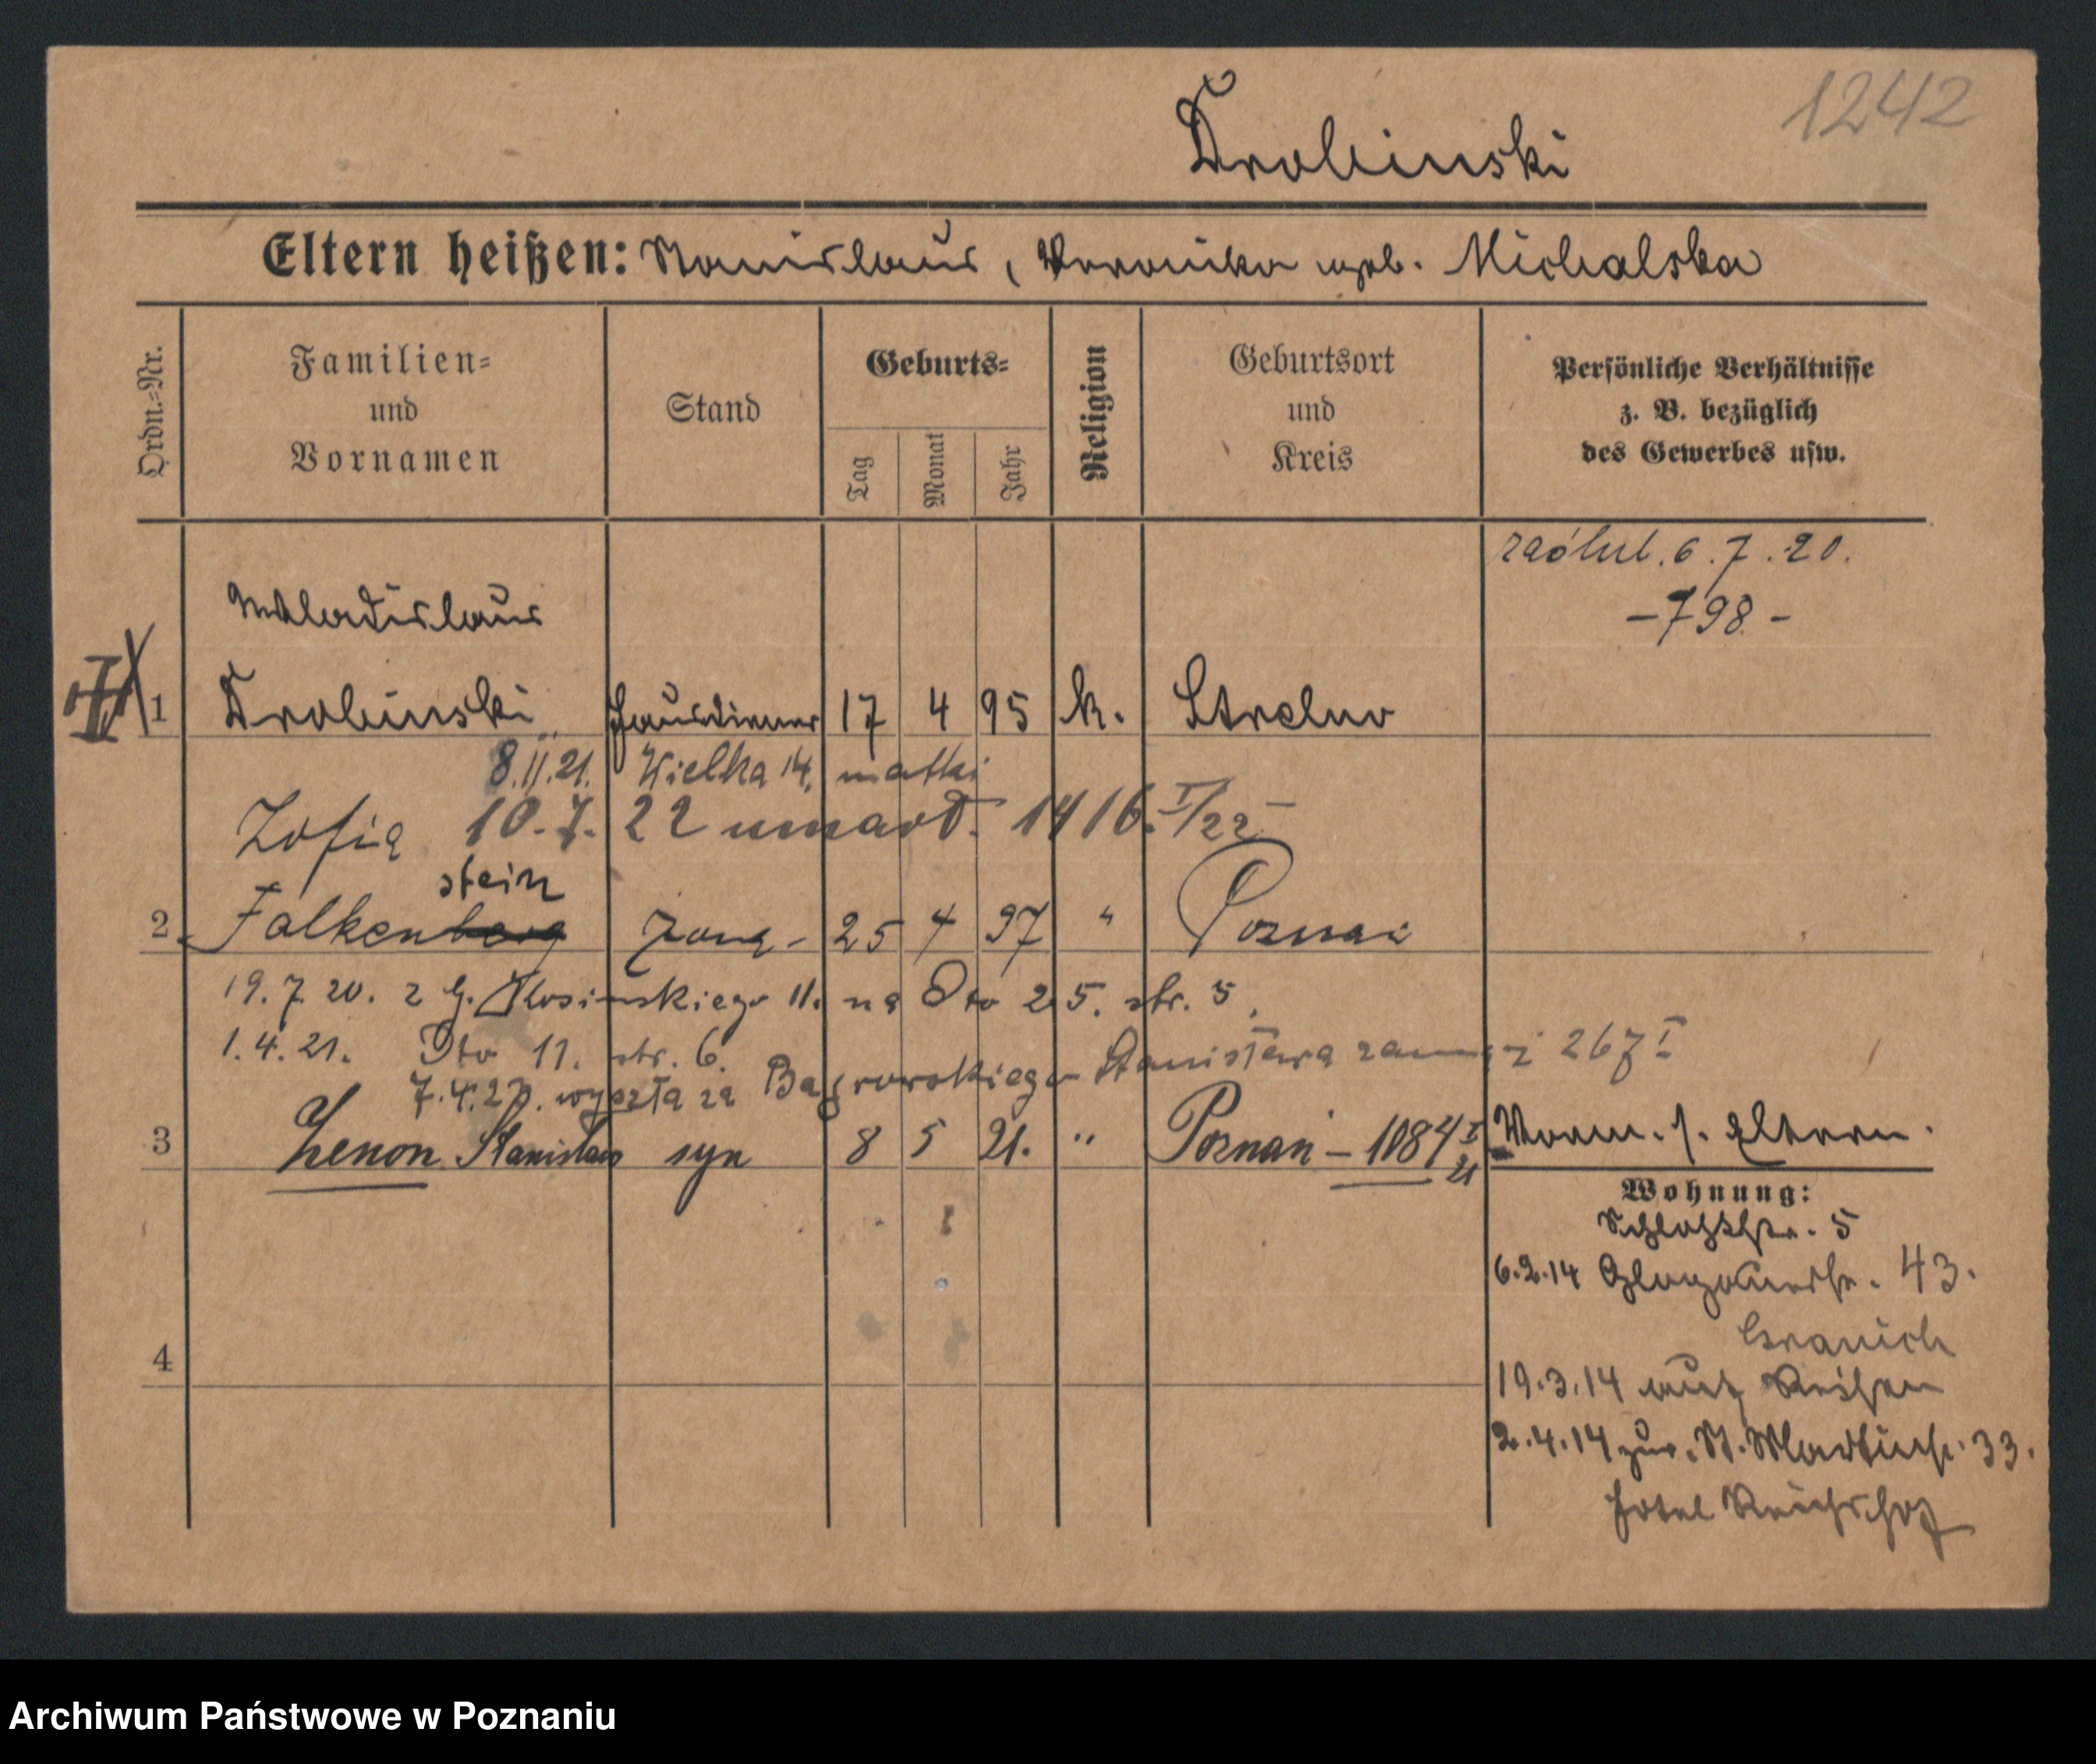 1242
Drobinski
Eltern heißen: Stanislaus, Veronika geb. Michalska
Ordn.-Nr.
Familien-
und
Vornamen
Stand
Geburts-
Tag
Monat
Jahr
Religion
Geburtsort
und
Kreis
Persönliche Verhältnisse
z. B. bezüglich
des Gewerbes usw.
zaślub. 6.7.20.
-798-
Wladislaus
1 Drobinski Hausdiener 17 4 95 k. Strelno
8.11.21. Wielka 14. matki
Zofia 10.7.22 umarł. 1416 I/22
stein
2 Falkenberg żona - 25 4 97 " Poznań
19.7.20. z G. 11. na Dto 25. str. 5.
1.4.21. Dto 11. str. 6.
7.4.27. wyszła za Stanisława 267 I
3 Zenon Stanislaw syn 8 5 21. " Poznań - 1084 I/21
Vorm. s. Eltern.
Wohnung:
Schloßstr. 5
6.2.14 Glogauerstr. 43.
19.3.14 auf Reisen
2.4.14 zur. St. Martinstr. 33.
Hotel Reichshof
4
Archiwum Państwowe w Poznaniu